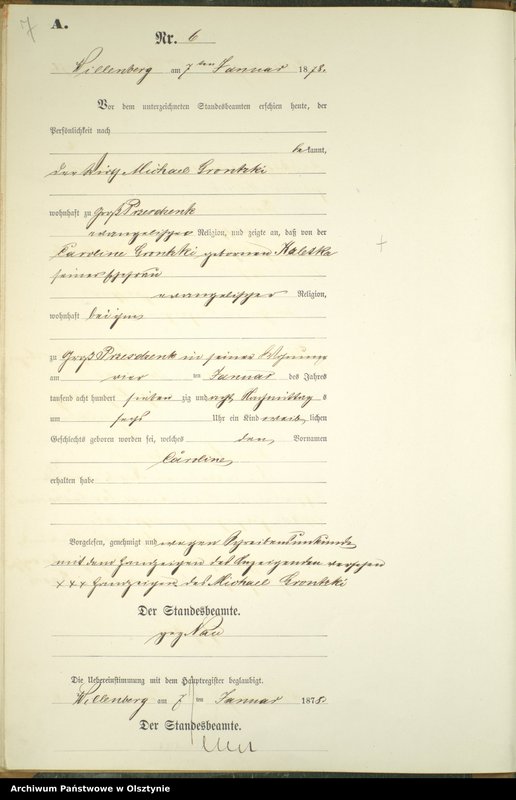 7
A.
Nr. 6
Willenberg am 7ten Januar 1878.
Vor dem unterzeichneten Standesbeamten erschien heute, der
Persönlichkeit nach
bekannt,
der Wirth Michael Gronkzki
wohnhaft zu Groß Przesdzenk
evangelischer Religion, und zeigte an, daß von der
Caroline Gronkzki geborenen Kaletka
seiner Ehefrau
evangelischer Religion,
wohnhaft bei ihm
zu Groß Przesdzenk in seiner Wohnung
am vier ten Januar des Jahres
tausend acht hundert sieben zig und acht Nachmittag s
um sechs Uhr ein Kind weib lichen
Geschlechts geboren worden sei, welches den Vornamen
Caroline
erhalten habe
Vorgelesen, genehmigt und wegen Schreibensunkunde
mit dem Handzeichen des Anzeigenden versehen
+++ Handzeichen des Michael Gronkzki
Der Standesbeamte.
gez Nau
Die Uebereinstimmung mit dem Hauptregister beglaubigt.
Willenberg am 7 ten Januar 1878.
Der Standesbeamte.
Archiwum Państwowe w Olsztynie